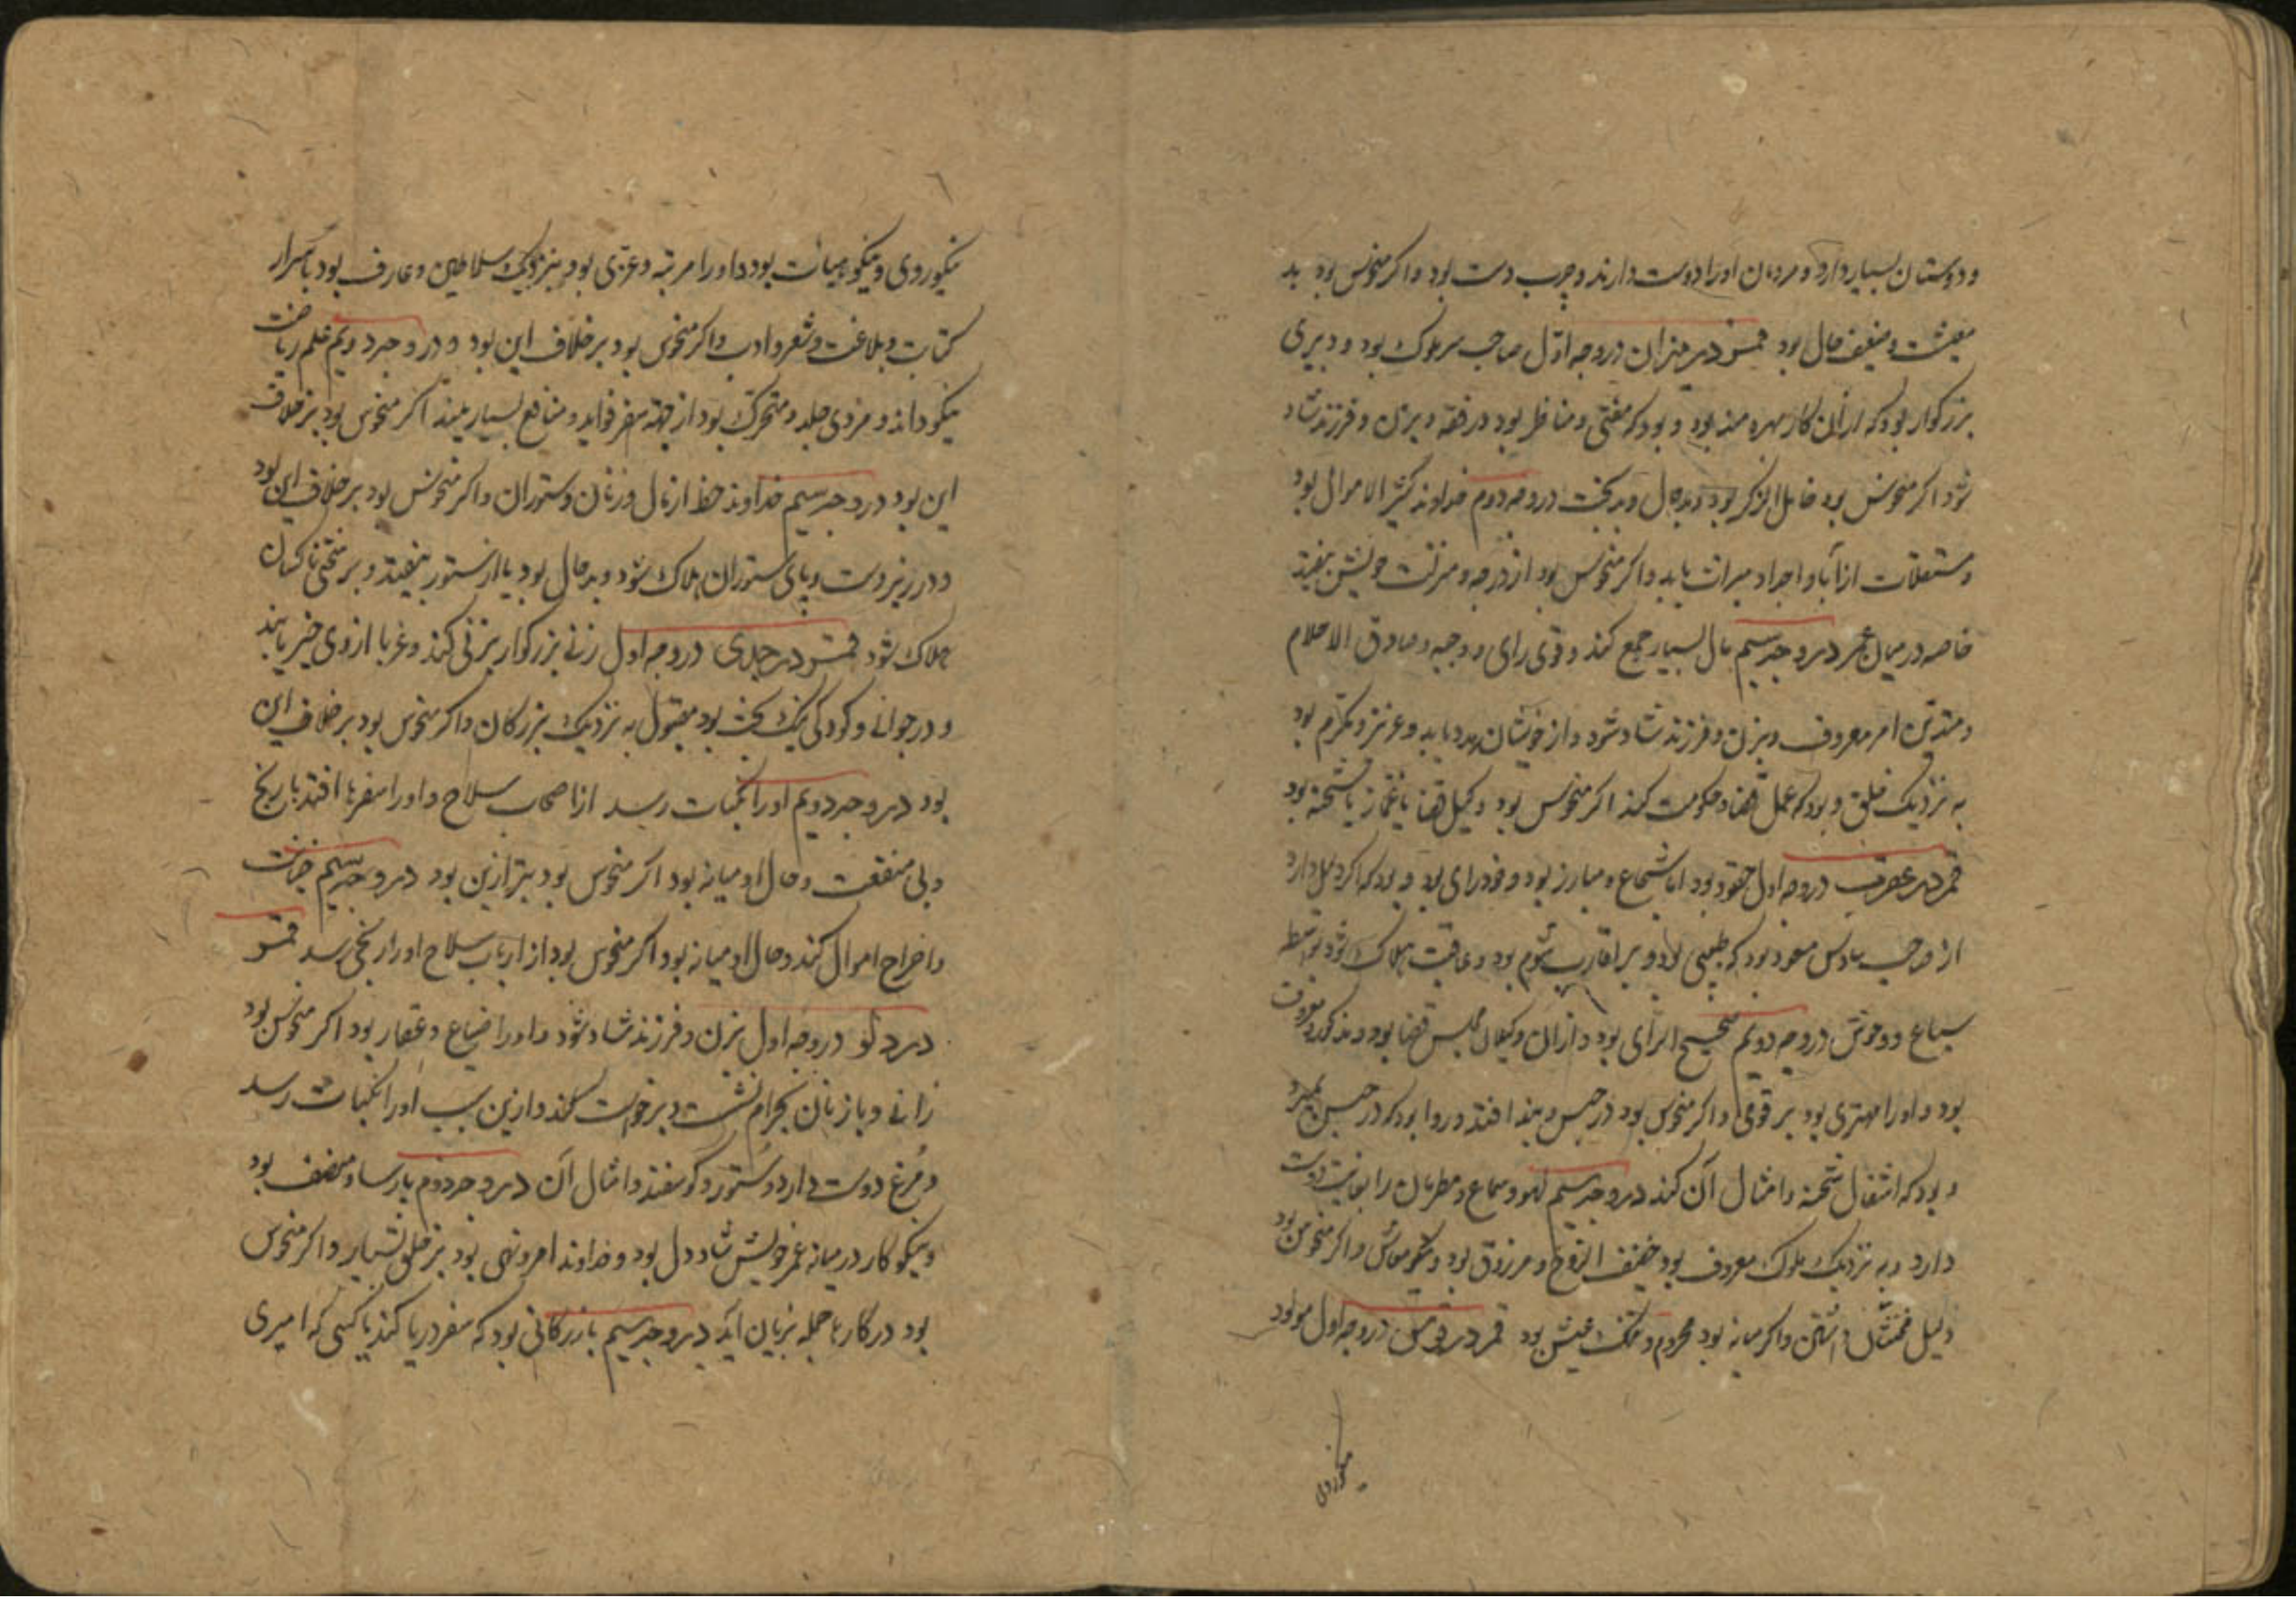 و دوستان بسیار دارد و مردمان او را دوست دارند و چرب دست بود و اکر منحوس بود بد
معیشت و ضعیف حال بود قمر در میزان در وجه اول صاحب سر ملوک بود و دبیری
بزرکوار بود که از آن کار بهره مند بود و بود که مفتی و مناظر بود در فقه و بزن و فرزند شاد
شود اکر منحوس بود خامل الذکر بود و بدحال و بدبخت در وجه دوم خداوند کثیر الاموال بود
و مستغلات از آبا و اجداد میراث یابد و اکر منحوس بود از درجه و منزلت خویش بیفتد
خاصه در میان عمر در وجه سیم مال بسیار جمع کند و قوی رای و وجیه و صادق الاحلام
و متدین امر معروف و بزن و فرزند شاد شود و از خویشان بهره یابد و عزیز و مکرم بود
به نزدیک خلق و بود که عمل قضا و حکومت کند اکر منحوس بود وکیل قضا یا غماز یا شحنه بود
قمر در عقرب در وجه اول حقود بود اما شجاع و مبارز بود و خودرای بود و بود که اکر دلیل دارد
از صاحب سادس مسعود بود که طبیبی بود و بر اقارب شوم بود و عاقبت هلاک شود بواسطه
سباع و وحوش در وجه دویم صحیح الرای بود و از آن وکیلان مجلس قضا بود و مذکور و معروف
بود و او را مهتری بود بر قومی و اکر منحوس بود در حبس و بند افتد و روا بود که در حبس بمیرد
و بود که اشغال شحنه و امثال آن کند در وجه سیم لهو و سماع و مطربان را بغایت دوست
دارد و به نزدیک ملوک معروف بود خفیف الروح و مرزوق بود و نیکو معاش و اکر منحوس بود
دلیل و اکر میانه بود محروم و تنک عیش بود قمر در قوس در وجه اول مولود
نیکوروی
نیکوروی و نیکو هیات بود و او را مرتبه و عزی بود بنزدیک سلاطین و عارف بود باسرار
کتابت و بلاغت و شعر و ادب و اکر منحوس بود بر خلاف این بود و در وجه دویم علم ریاضت
نیکو داند و مردی جلد و متحرک بود از جهة سفر فواید و منافع بسیار بیند اکر منحوس بود بر خلاف
این بود در وجه سیم خداوند حظ از مال و زنان و ستوران و اکر منحوس بود بر خلاف این بود
و در زیر دست و پای ستوران هلاک شود و بدحال بود یا از ستور بیفتد و بر سختی ناکهان
هلاک شود قمر در جدی در وجه اول زنی بزرکوار بزنی کند و غربا از وی خیر یابند
و در جوانی و کودکی نیک بخت بود مقبول به نزدیک بزرکان و اکر منحوس بود بر خلاف این
بود در وجه دویم او را نکبات رسد از اصحاب سلاح و او را سفرها افتد با رنج
و بی منفعت و حال او میانه بود اکر منحوس بود بتر ازین بود در وجه سیم خیانت
و اخراج اموال کند و حال او میانه بود و اکر منحوس بود از ارباب سلاح او را رنجی رسد قمر
در دلو در وجه اول بزن و فرزند شاد شود و او را ضیاع و عقار بود اکر منحوس بود
زانی و با زنان بحرام نشست و برخواست کند و ازین سبب او را نکبات رسد
و مرغ دوست دارد و ستور و کوسفند و امثال آن در وجه دوم پارسا و منصف بود
و نیکو کار در میانه عمر خویش شاد دل بود و خداوند امر و نهی بود بر خلق بسیار و اکر منحوس
بود در کارها جمله بزیان آید در وجه سیم بازرکانی بود که سفر دریا کند یا کسی که امیری